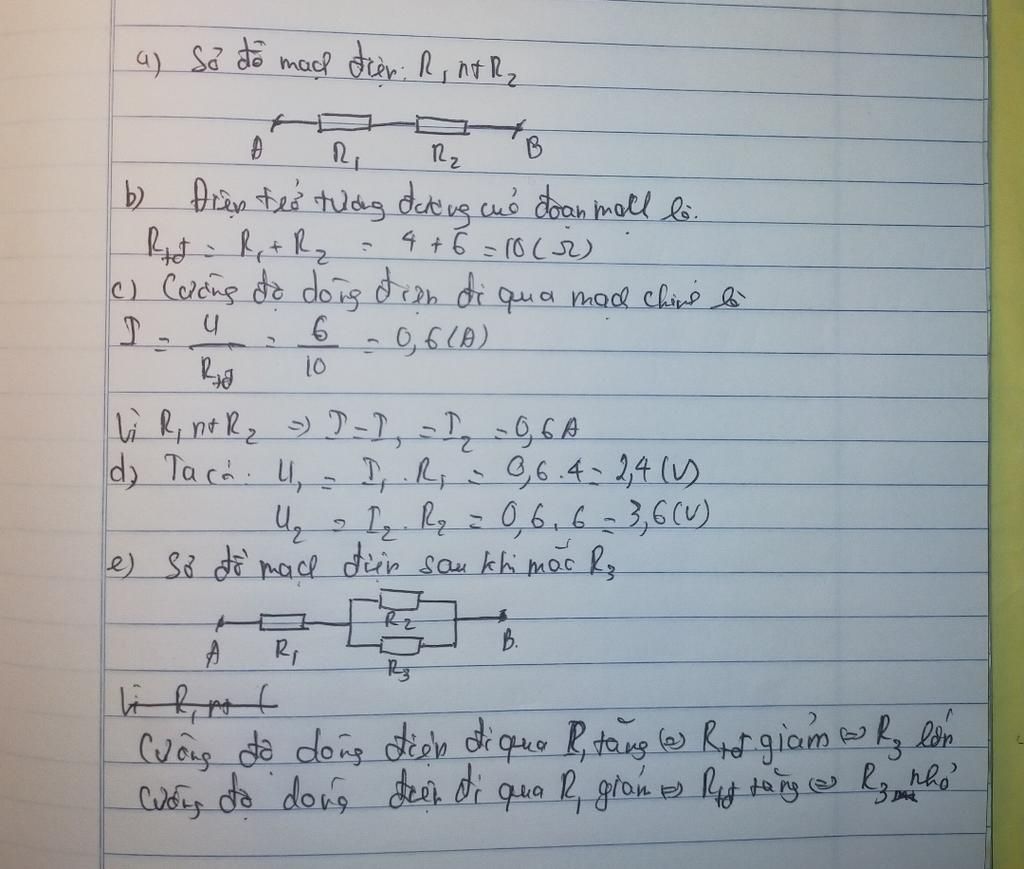 a) Sơ đồ mạch điện: R₁ nt R₂
A R₁ R₂ B
b) Điện trở tương đương của đoạn mạch là.
Rtđ = R₁ + R₂ = 4 + 6 = 10 (Ω)
c) Cường độ dòng điện đi qua mạch chính là
I = U/Rtđ = 6/10 = 0,6 (A)
Vì R₁ nt R₂ => I = I₁ = I₂ = 0,6A
d) Ta có: U₁ = I₁ . R₁ = 0,6 . 4 = 2,4 (V)
U₂ = I₂ . R₂ = 0,6 . 6 = 3,6 (V)
e) Sơ đồ mạch điện sau khi mắc R₃
R₂
A R₁ B.
R₃
Vì R₁ nt (
Cường độ dòng điện đi qua R₁ tăng <=> Rtđ giảm <=> R₃ lớn
Cường độ dòng điện đi qua R₁ giảm => Rtđ tăng <=> R₃ nhỏ